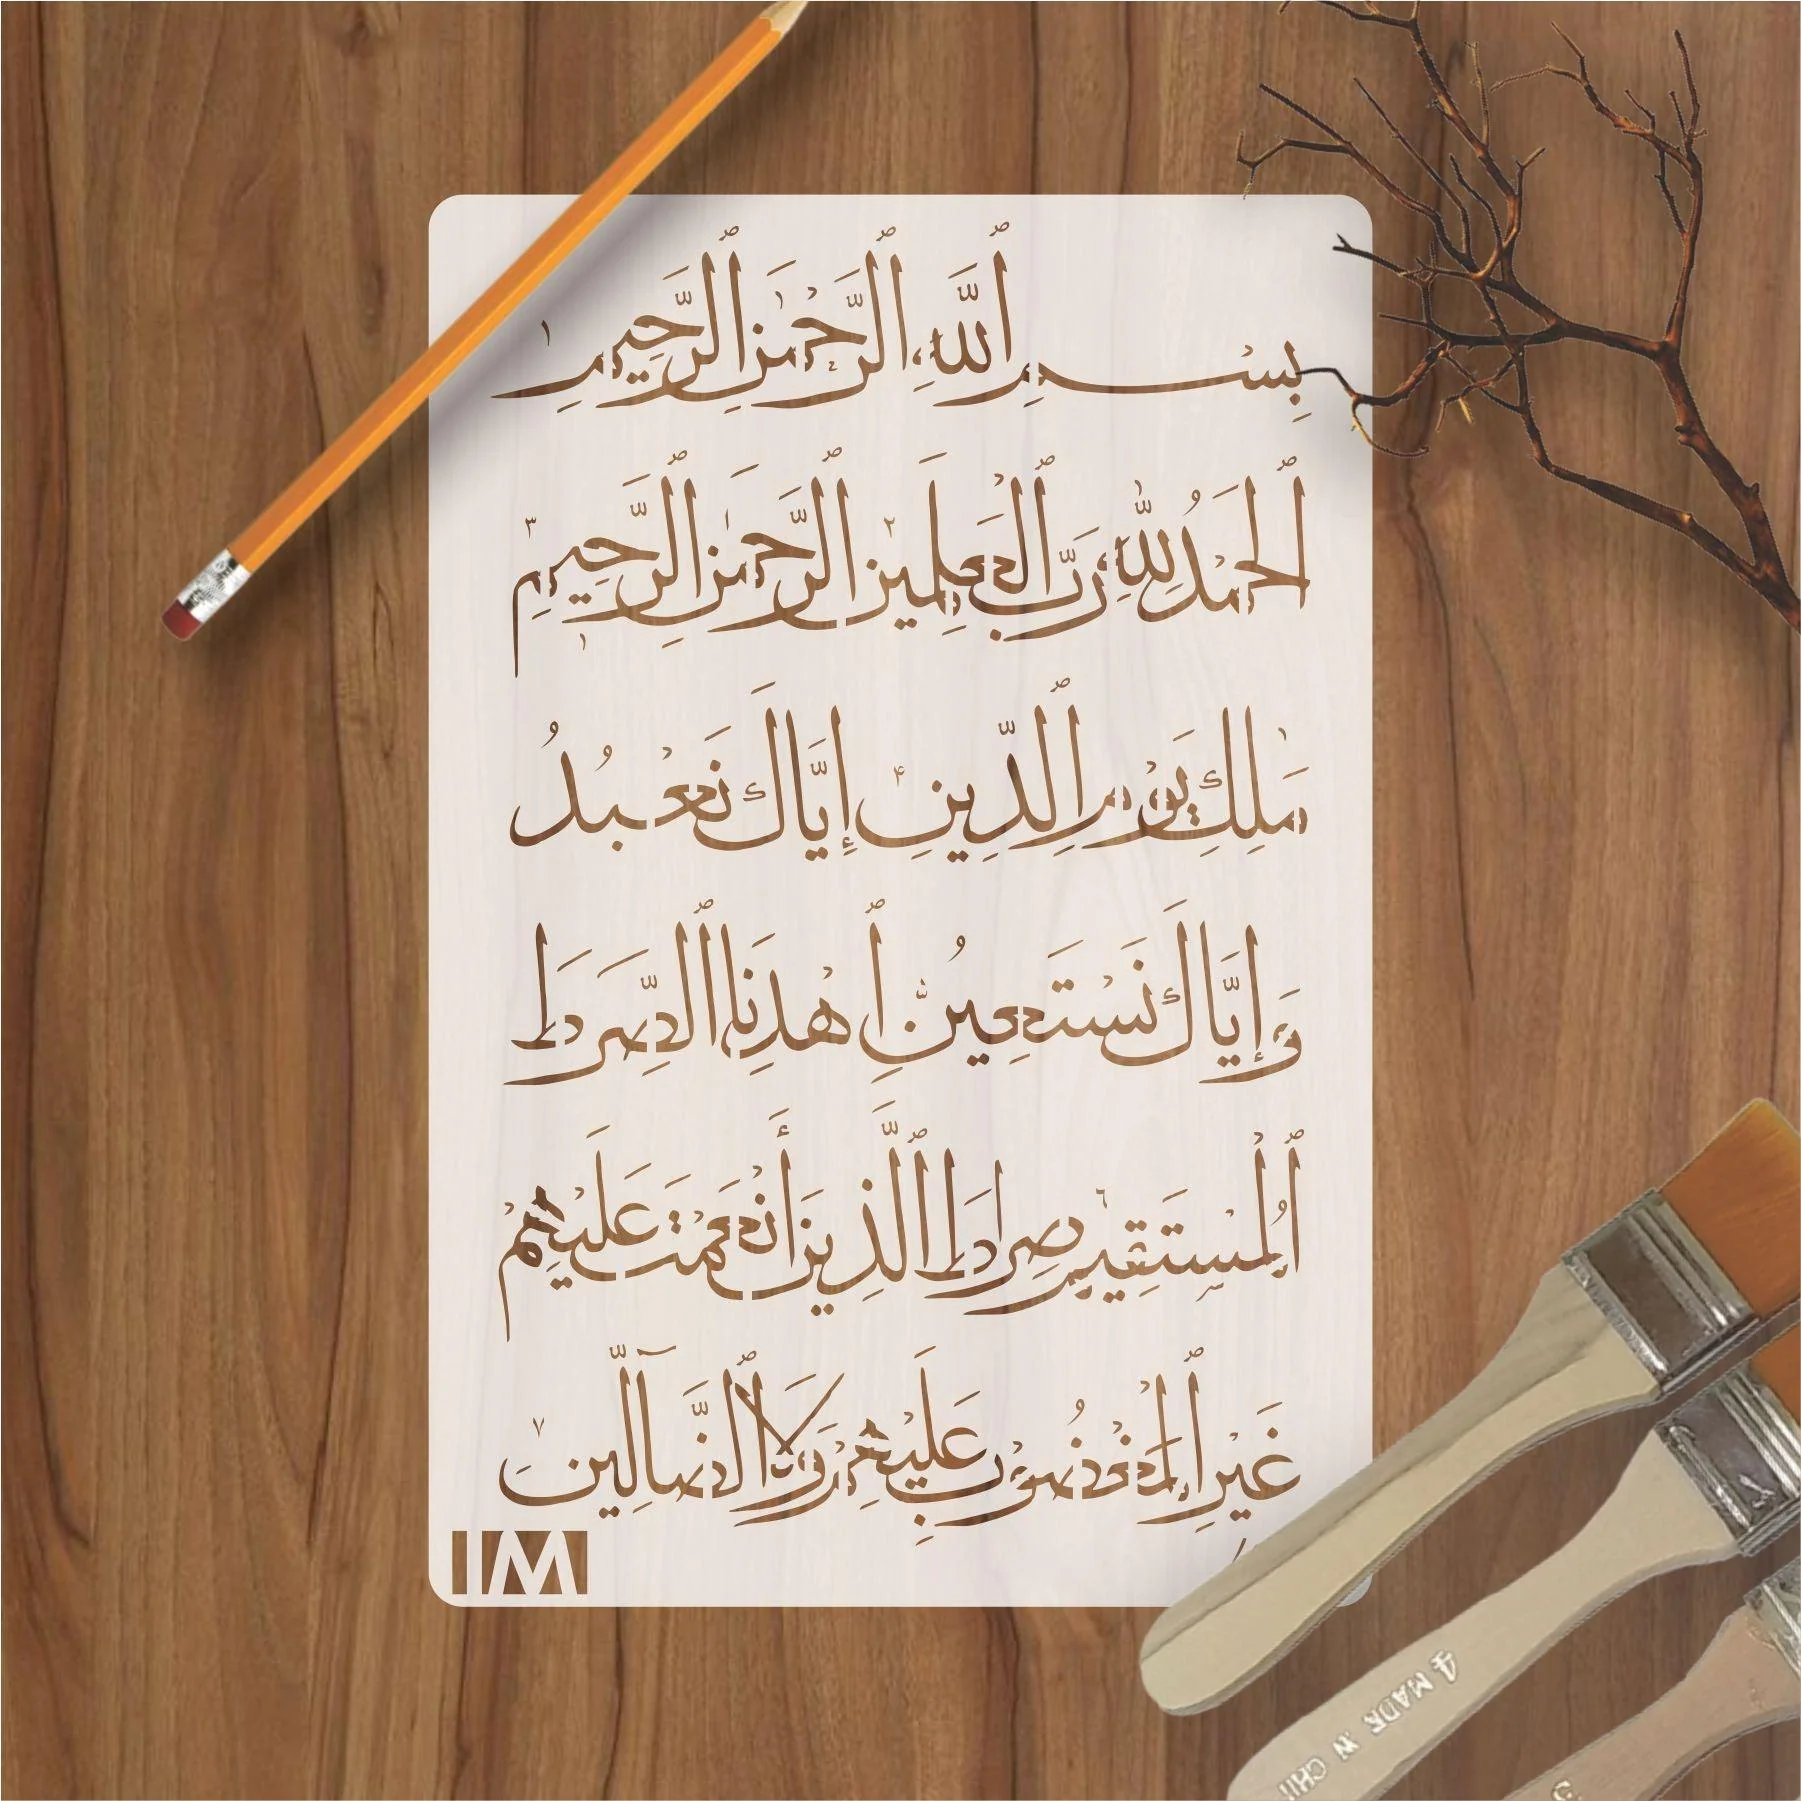 بِسْمِ ٱللَّهِ ٱلرَّحْمَٰنِ ٱلرَّحِيمِ ١
ٱلْحَمْدُ لِلَّهِ رَبِّ ٱلْعَٰلَمِينَ ٢ ٱلرَّحْمَٰنِ ٱلرَّحِيمِ ٣
مَٰلِكِ يَوْمِ ٱلدِّينِ ۴ إِيَّاكَ نَعْبُدُ
وَإِيَّاكَ نَسْتَعِينُ ٱهْدِنَا ٱلصِّرَٰطَ
ٱلْمُسْتَقِيمَ ٦ صِرَٰطَ ٱلَّذِينَ أَنْعَمْتَ عَلَيْهِمْ
غَيْرِ ٱلْمَغْضُوبِ عَلَيْهِمْ وَلَا ٱلضَّآلِّينَ ٧
IM
4 MADE .W CHI
3